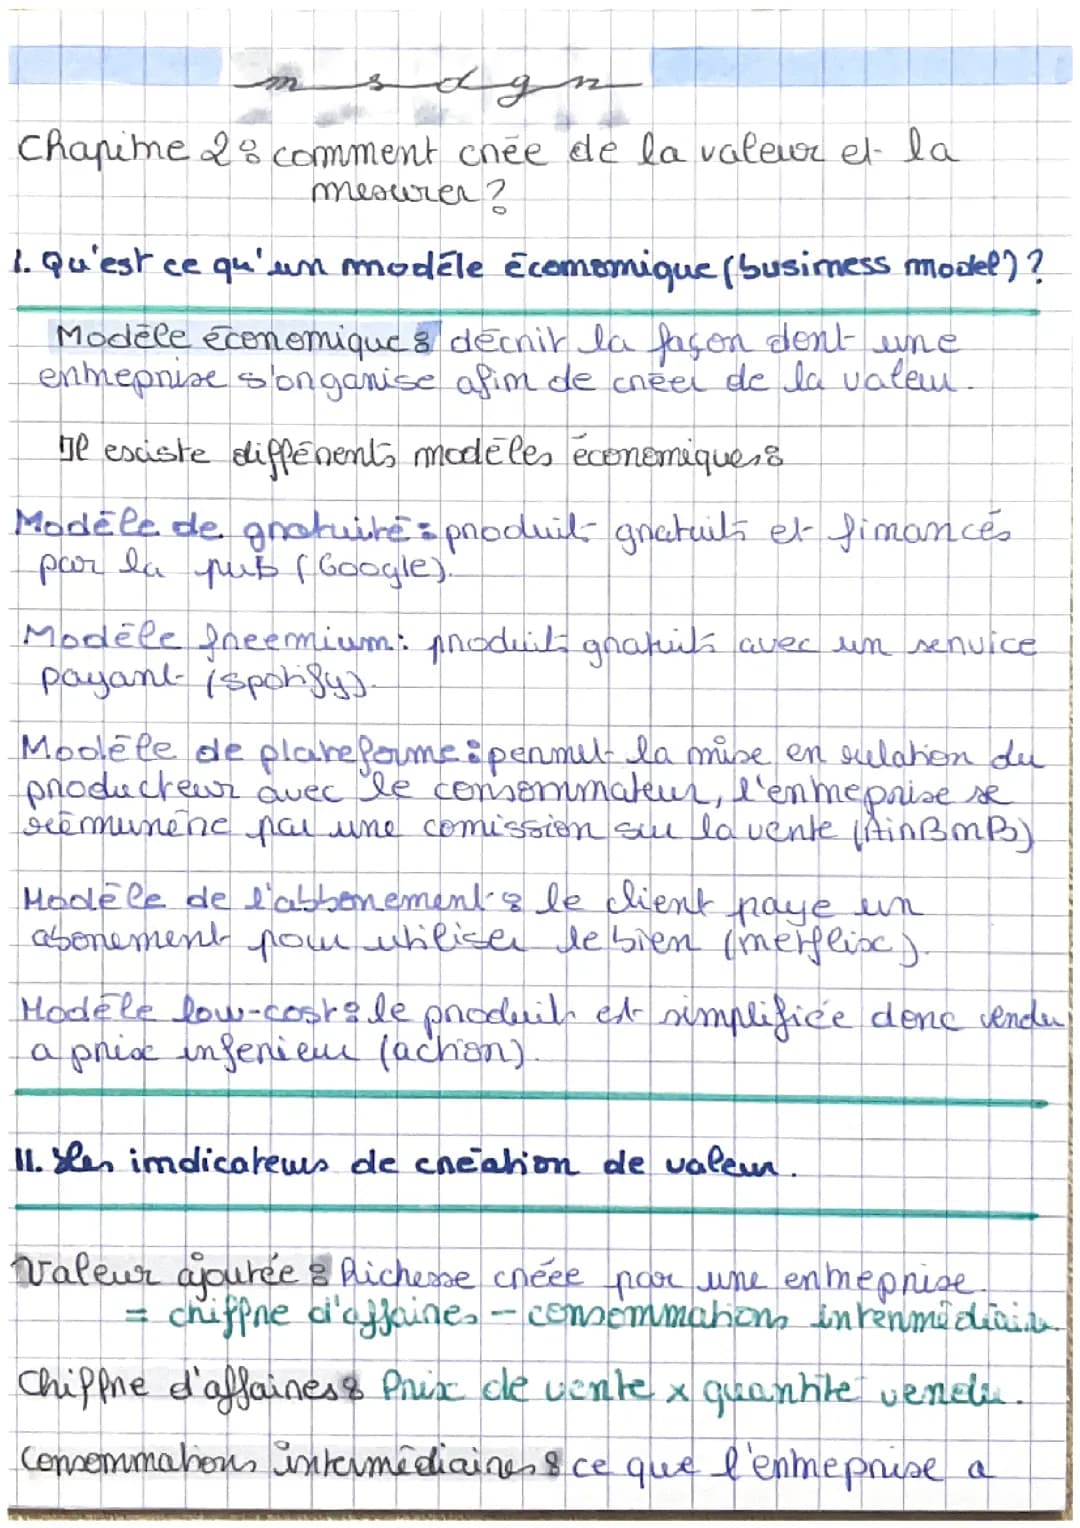 msdgn
Chapitre 2 : comment crée de la valeur et la
mesurer ?
I. Qu'est ce qu'un modèle économique (business model) ?
Modèle économique : décrit la façon dont une
entreprise s'organise afin de créer de la valeur.
Il existe différents modèles économiques :
Modèle de gratuité : produit gratuits et financés
par la pub (Google).
Modèle freemium : produits gratuits avec un service
payant (spotify).
Modèle de plateforme : permet la mise en relation du
producteur avec le consommateur, l'entreprise se
rémunère par une comission sur la vente (AirBmB)
Modèle de l'abbonement : le client paye un
abonement pour utiliser le bien (netflix).
Modèle low-cost : le produit est simplifiée donc vendu
a prix inferieur (action).
II. Les indicateurs de création de valeur.
Valeur ajoutée : Richesse créée par une entreprise.
= chiffre d'affaires - consommations intermédiaire.
Chiffre d'affaires : Prix de vente x quantité vendu.
Consommations intermédiaires : ce que l'entreprise a